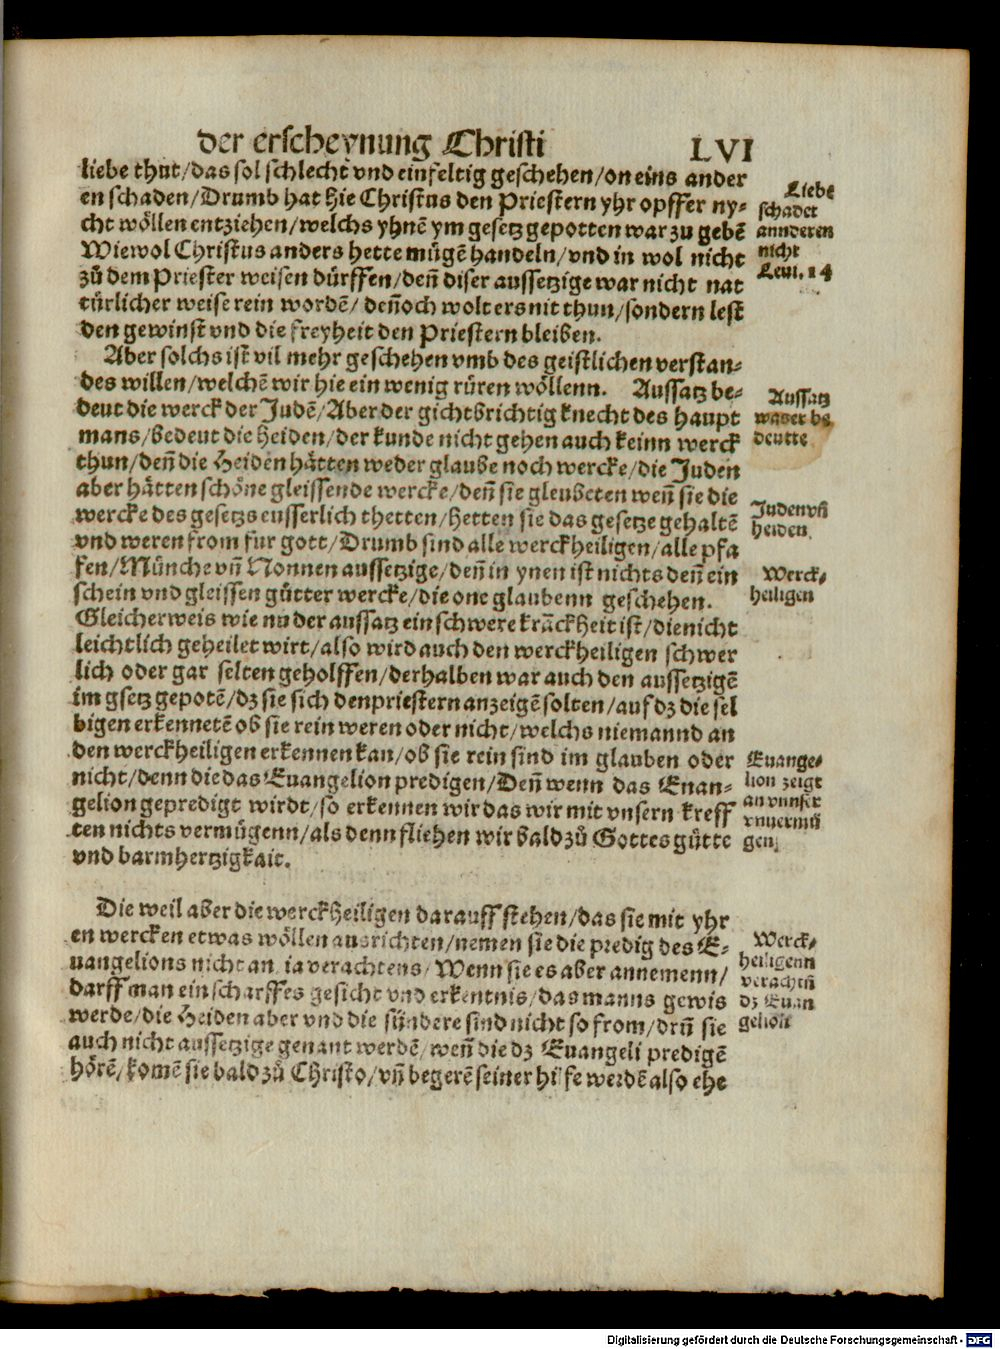 der erscheynung Christi LVI
liebe thut/das sol schlecht vnd einfeltig geschehen/on eins ander
en schaden/Drumb hat hie Christus den Priestern yhr opffer ny-
cht wöllen entziehen/welchs yhnē ym gesetz gepotten war zu gebē
Wiewol Christus anders hette mügē handeln/vnd in wol nicht
zů dem Priester weisen dürffen/deñ diser aussetzige war nicht nat
türlicher weise rein wordē/ deñoch wolt ers nit thun/sondern lest
den gewinst vnd die freyheit den Priestern bleiben.
Liebe
schadet
annderen
nicht
Leui. 14
Aber solchs ist vil mehr geschehen vmb des geistlichen verstan-
des willen/welchē wir hie ein wenig rüren wöllenn. Aussatz be-
deut die werck der Judē/Aber der gichtbrichtig knecht des haupt
mans/bedeut die Heiden/der kunde nicht gehen auch keinn werck
thun/deñ die Heiden hätten weder glaube noch wercke/die Juden
aber hätten schöne gleissende wercke/deñ sie gleubeten weñ sie die
wercke des gesetzs eusserlich thetten/hetten sie das gesetze gehaltē
vnd weren from fur gott/Drumb sind alle werckheiligen/alle pfa
fen/Münche vñ Nonnen aussetzige/deñ in ynen ist nichts deñ ein
schein vnd gleissen gütter wercke/die one glaubenn geschehen.
Aussatz
waser be
deutte
Juden vñ
heiden
Werck-
heiligen
Gleicher weis wie nu der aussatz ein schwere krāckheit ist/die nicht
leichtlich geheilet wirt/also wird auch den werckheiligen schwer
lich oder gar selten geholffen/derhalben war auch den aussetzigē
im gsetz gepotē/dz sie sich den priestern anzeigē solten/auf dz die sel
bigen erkennetē ob sie rein weren oder nicht/welchs niemannd an
den werckheiligen erkennen kan/ob sie rein sind im glauben oder
nicht/denn die das Euangelion predigen/Deñ wenn das Euan-
gelion gepredigt wirdt/so erkennen wir das wir mit vnsern kreff
ten nichts vermügenn/als denn fliehen wir bald zů Gottes gütte
vnd barmhertzigkait.
Euange-
lion zeigt
an vnnser
vnuermü
gen
Die weil aber die werckheiligen darauff stehen/das sie mit yhr
en wercken etwas wöllen ausrichten/nemen sie die predig des E-
uangelions nicht an ia verachtens/Wenn sie es aber annemenn/
darff man ein scharffes gesicht vnd erkentnis/das manns gewis
werde/die Heiden aber vnd die sündere sind nicht so from/drū sie
auch nicht aussetzige genant werdē/weñ die dz Euangeli predigē
hörē/komē sie bald zů Christo/vñ begerē seiner hilfe werdē also ehe
Werck-
heiligenn
verachtñ
dz Euan
gelion
Digitalisierung gefördert durch die Deutsche Forschungsgemeinschaft - DFG